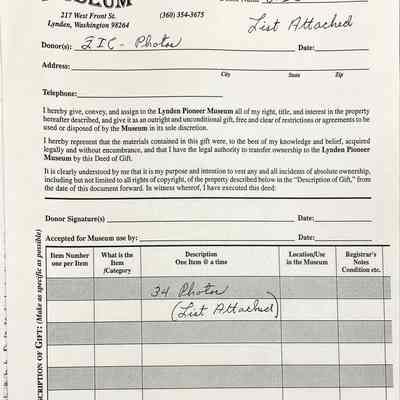 MUSEUM
217 West Front St.
Lynden, Washington 98264
(360) 354-3675
List Attached
Donor(s): FIC - Photos Date:
Address:
City State Zip
Telephone:
I hereby give, convey, and assign to the Lynden Pioneer Museum all of my right, title, and interest in the property
hereafter described, and give it as an outright and unconditional gift, free and clear of restrictions or agreements to be
used or disposed of by the Museum in its sole discretion.
I hereby represent that the materials contained in this gift were, to the best of my knowledge and belief, acquired
legally and without encumbrance, and that I have the legal authority to transfer ownership to the Lynden Pioneer
Museum by this Deed of Gift.
It is clearly understood by me that it is my purpose and intention to vest any and all incidents of absolute ownership,
including but not limited to all rights of copyright, of the property described below in the "Description of Gift," from
the date of this document forward. In witness whereof, I have executed this deed:
Donor Signature(s) Date:
Accepted for Museum use by: Date:
Item Number
one per Item
What is the
Item
/Category
Description
One Item @ a time
Location/Use
in the Museum
Registrar's
Notes
Condition etc.
34 Photos
(List Attached)
SCRIPTION OF GIFT: (Make as specific as possible)